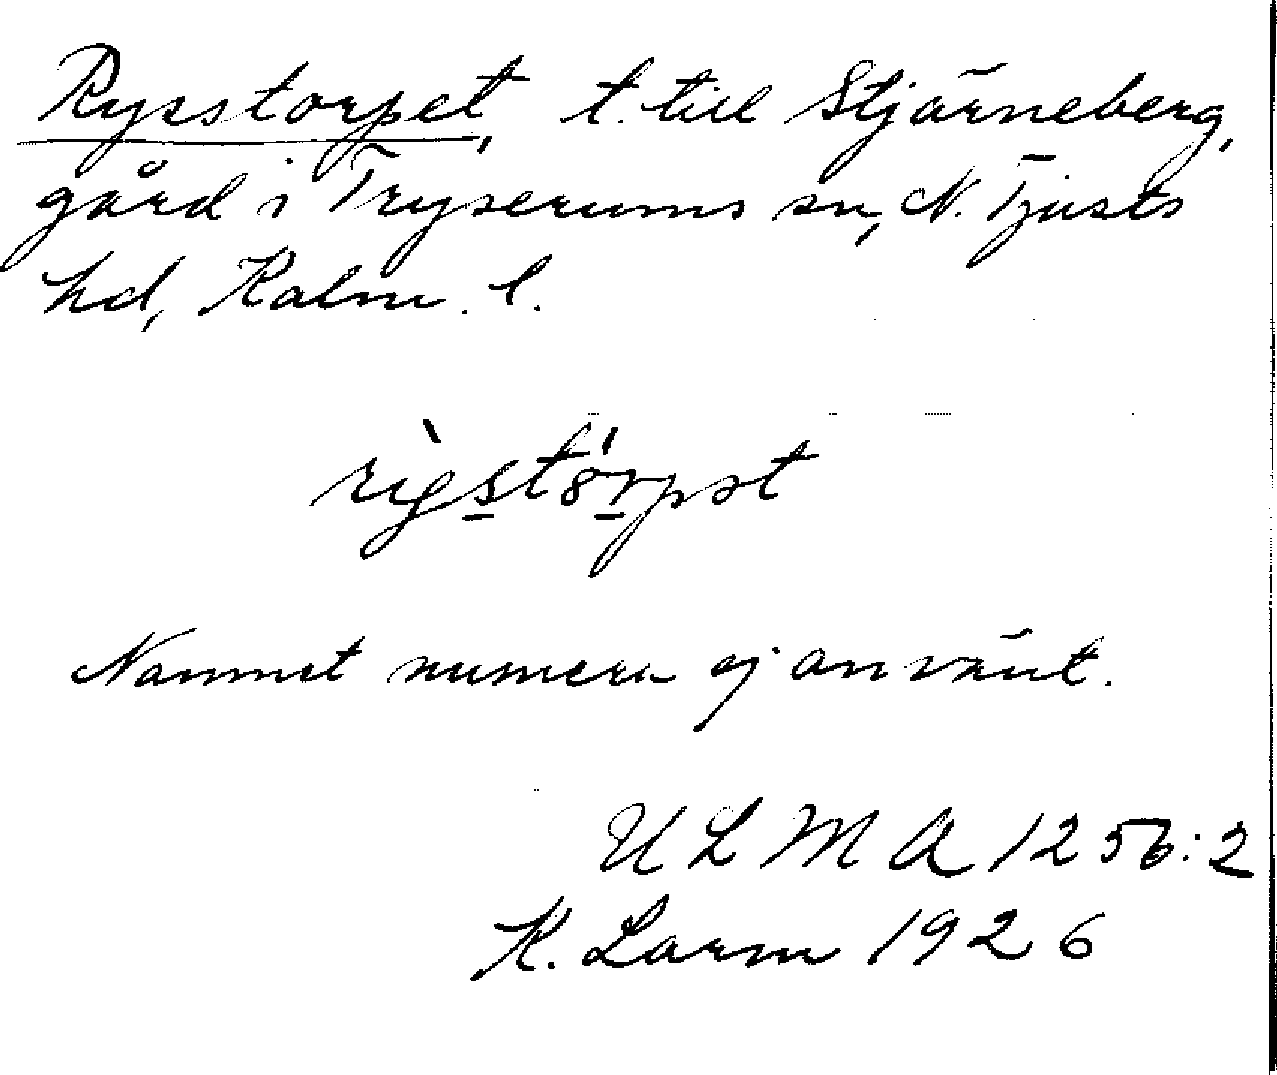 Rysstorpet, t. till Stjärneberg,
gård i Tryserums sn, N. Tjusts
hd, Kalm. l.
Namnet numera ej använt.
ULMA 1256:2
K. Larm 1926